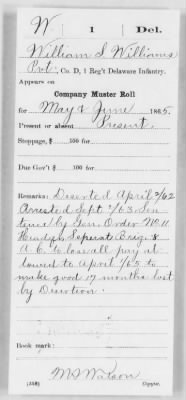 W | 1 | Del.
William S Williams
Pvt., Co. D, 1 Reg't Delaware Infantry.
Appears on
Company Muster Roll
for May & June, 1865.
Present or absent Present
Stoppage, $ 100 for
Due Gov't $ 100 for
Remarks: Deserted April 2/62
Arrested Sept 2/63 Sen
tence by Gen. Order No 11
Headqrs Seperat Brig. 8
A. C. to lose all pay al
lowed to April 1/65 to
make good 17 months lost
by Desertion.
Book mark:
Watson
(358) Copyist.